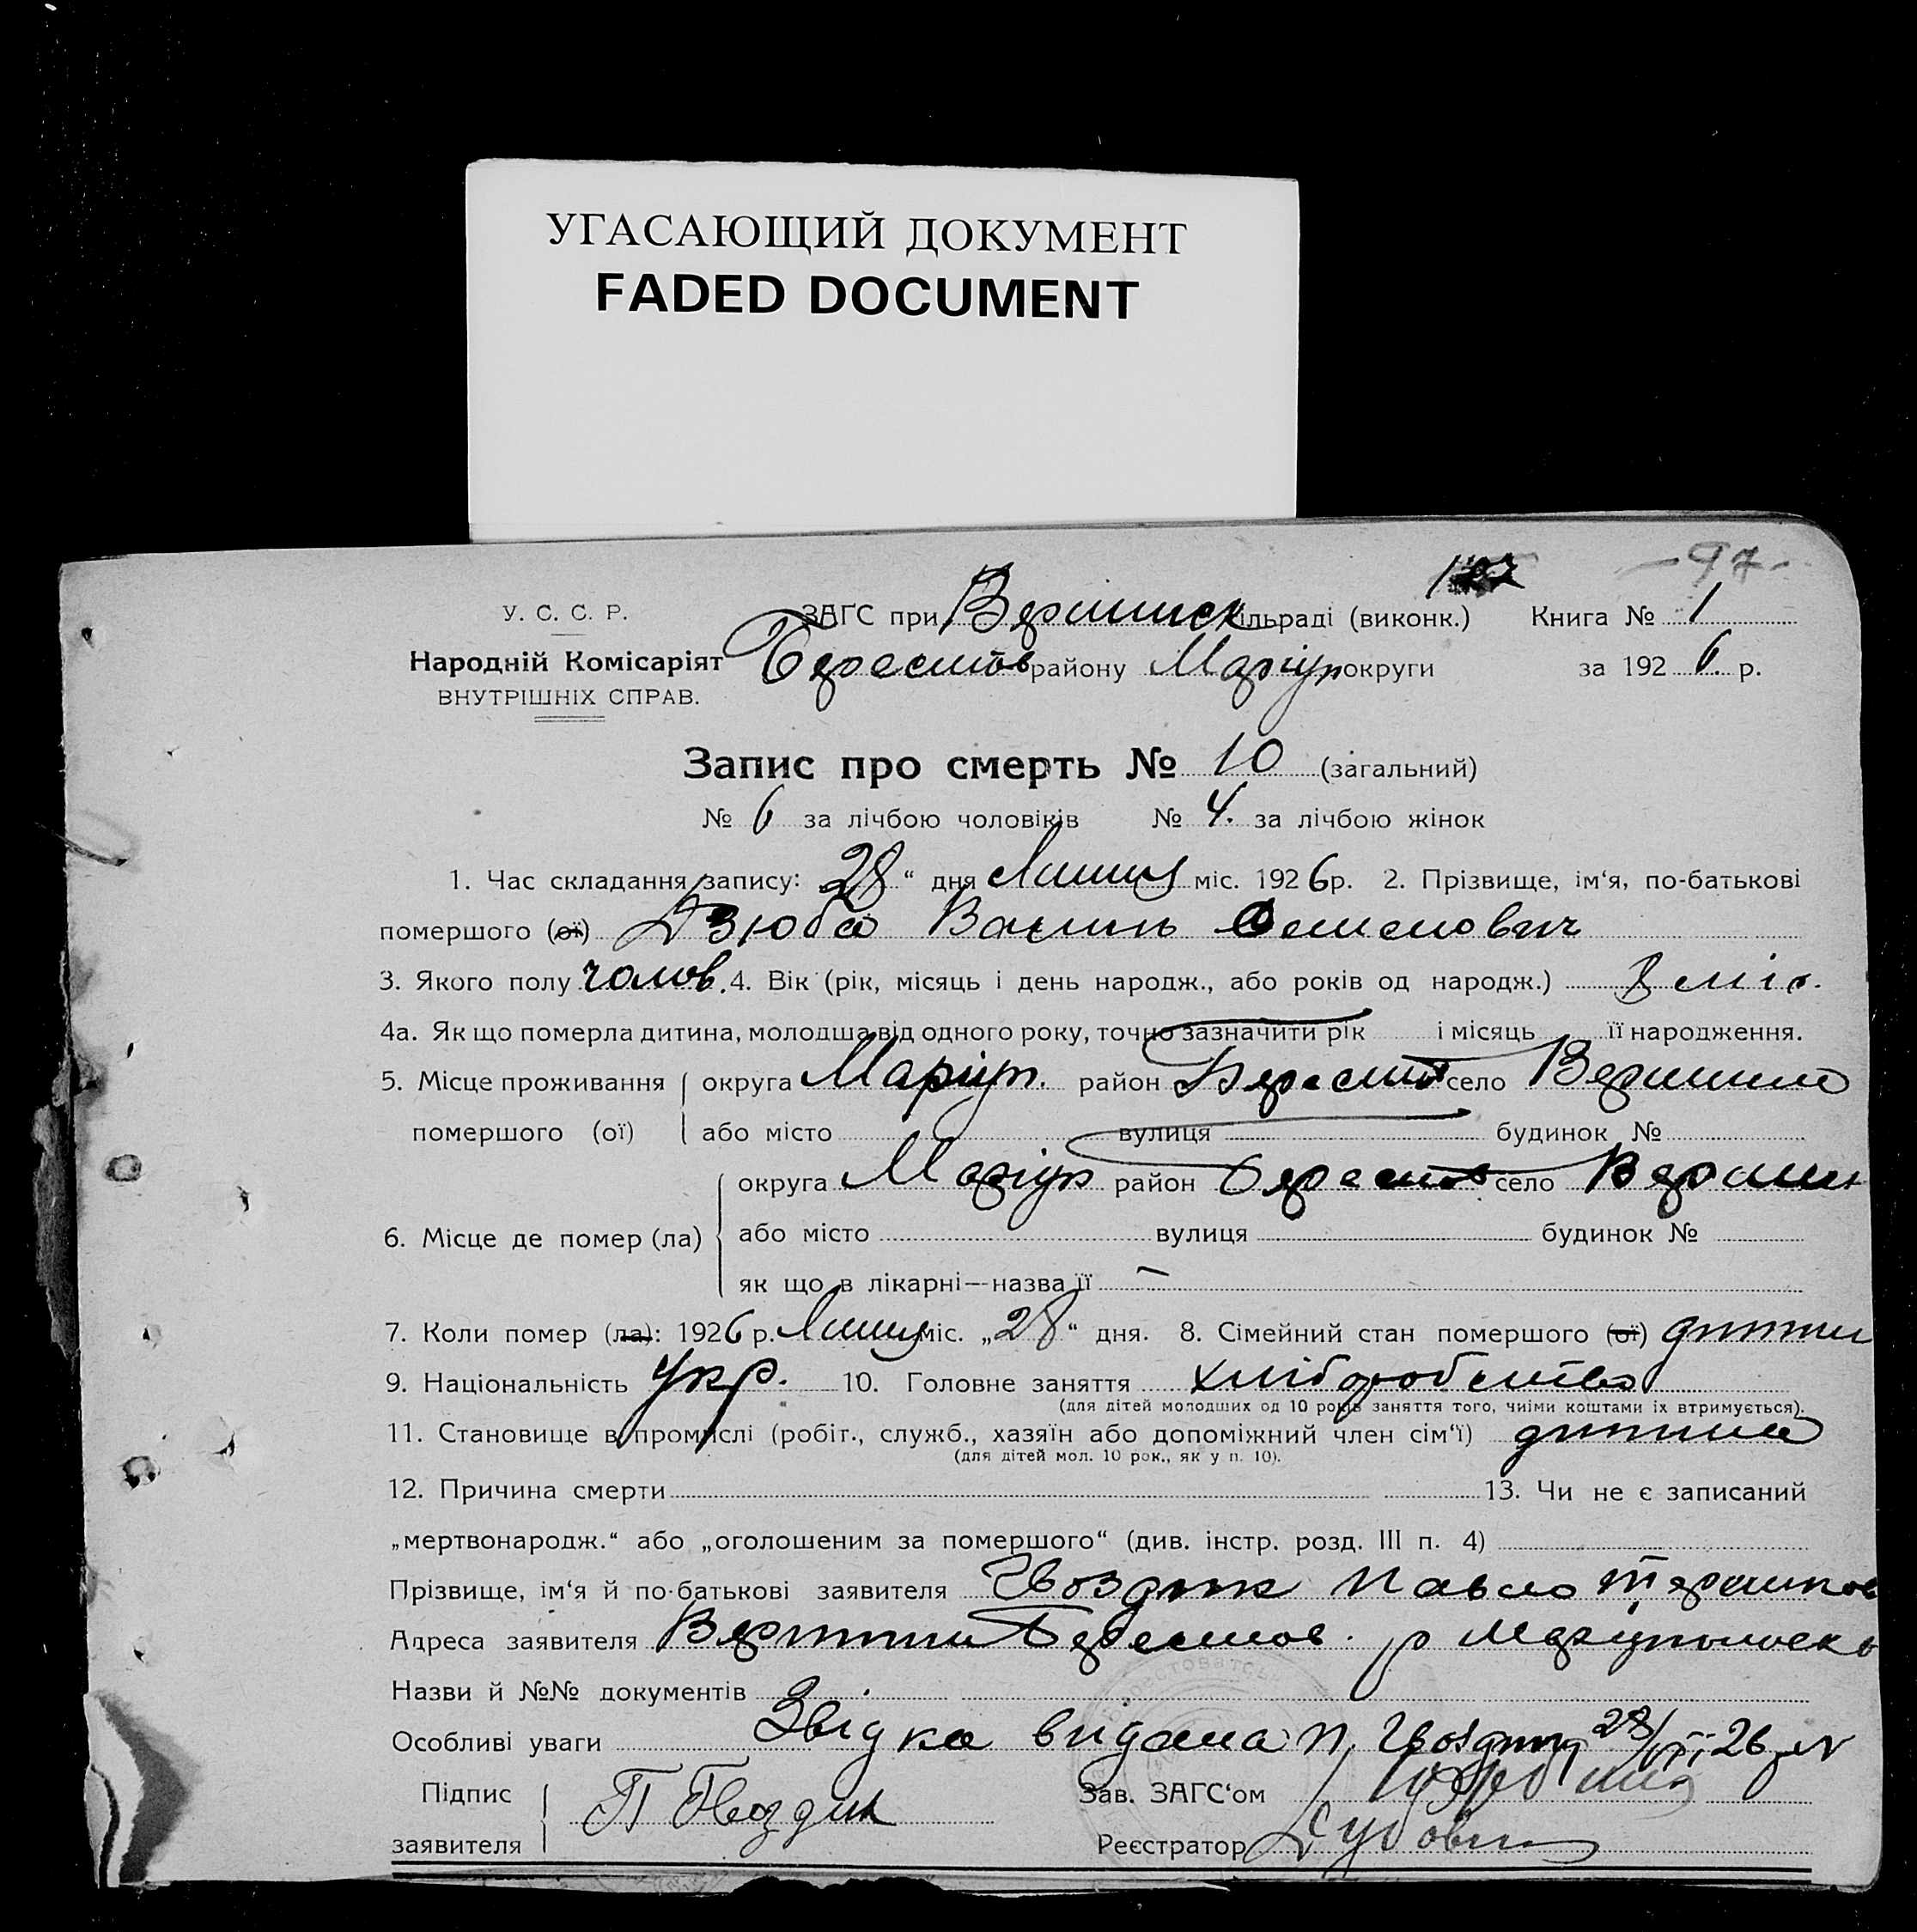 УГАСАЮЩИЙ ДОКУМЕНТ
FADED DOCUMENT
– 97 –
У. С. С. Р. ЗАГС при Вершинск сільраді (виконк.) Книга № 1
Народній Комісаріят Берестов району Маріуп округи за 1926 р.
ВНУТРІШНІХ СПРАВ.
Запис про смерть № 10 (загальний)
№ 6 за лічбою чоловіків № 4. за лічбою жінок
1. Час складання запису: 28 “ дня Липня міс. 1926 р. 2. Прізвище, ім‘я, по-батькові
помершого (ої) Дзюба Василь
3. Якого полу чолов. 4. Вік (рік, місяць і день народж., або років од народж.) 8 міс.
4а. Як що померла дитина, молодша від одного року, точно зазначити рік і місяць її народження.
5. Місце проживання округа Маріуп. район Берестов село Вершино
помершого (ої) або місто вулиця будинок №
округа Маріуп район Берестов село Вершин
6. Місце де помер (ла) або місто вулиця будинок №
як що в лікарні—назва її —
7. Коли помер (ла): 1926 р. Липня міс. „28“ дня. 8. Сімейний стан помершого (ої) дитин
9. Національність Укр. 10. Головне заняття хліборобство
(для дітей молодших од 10 років заняття того, чиїми коштами їх втримується).
11. Становище в промислі (робіт., служб., хазяїн або допоміжний член сім‘ї) дитина
(для дітей мол. 10 рок., як у п. 10).
12. Причина смерти 13. Чи не є записаний
„мертвонародж.“ або „оголошеним за помершого“ (див. інстр. розд. III п. 4)
Прізвище, ім‘я й по-батькові заявителя Гвоздик Павло
Адреса заявителя Вершини Берестов. р Маріупольськ
Назви й №№ документів
Особливі уваги Звідка видана П. Гвоздику 28/VII 26
Підпис П Гвоздик Зав. ЗАГС‘ом
заявителя Реєстратор